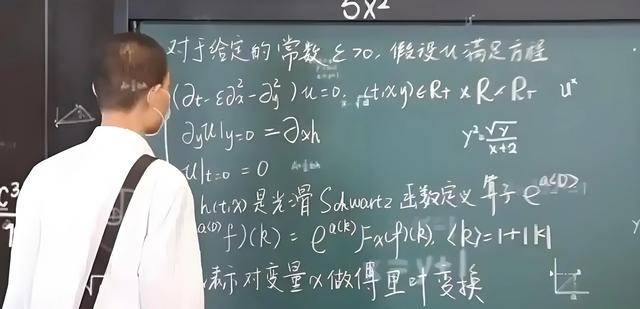 5x²
对于给定的常数 ε>0, 假设 u 满足方程
(∂t - ε∂x² - ∂y²) u = 0, (t,x,y) ∈ R+ × R × R+
u^x
∂yu|y=0 = ∂xh
y² = √y/(x+2)
u|t=0 = 0
h(t,x) 是光滑 Schwartz 函数定义 算子 e^a(D)
f)(k) = e^a(k) Fx(f)(k), ⟨k⟩ = 1+|k|
表示对变量 x 做傅里叶变换
C³